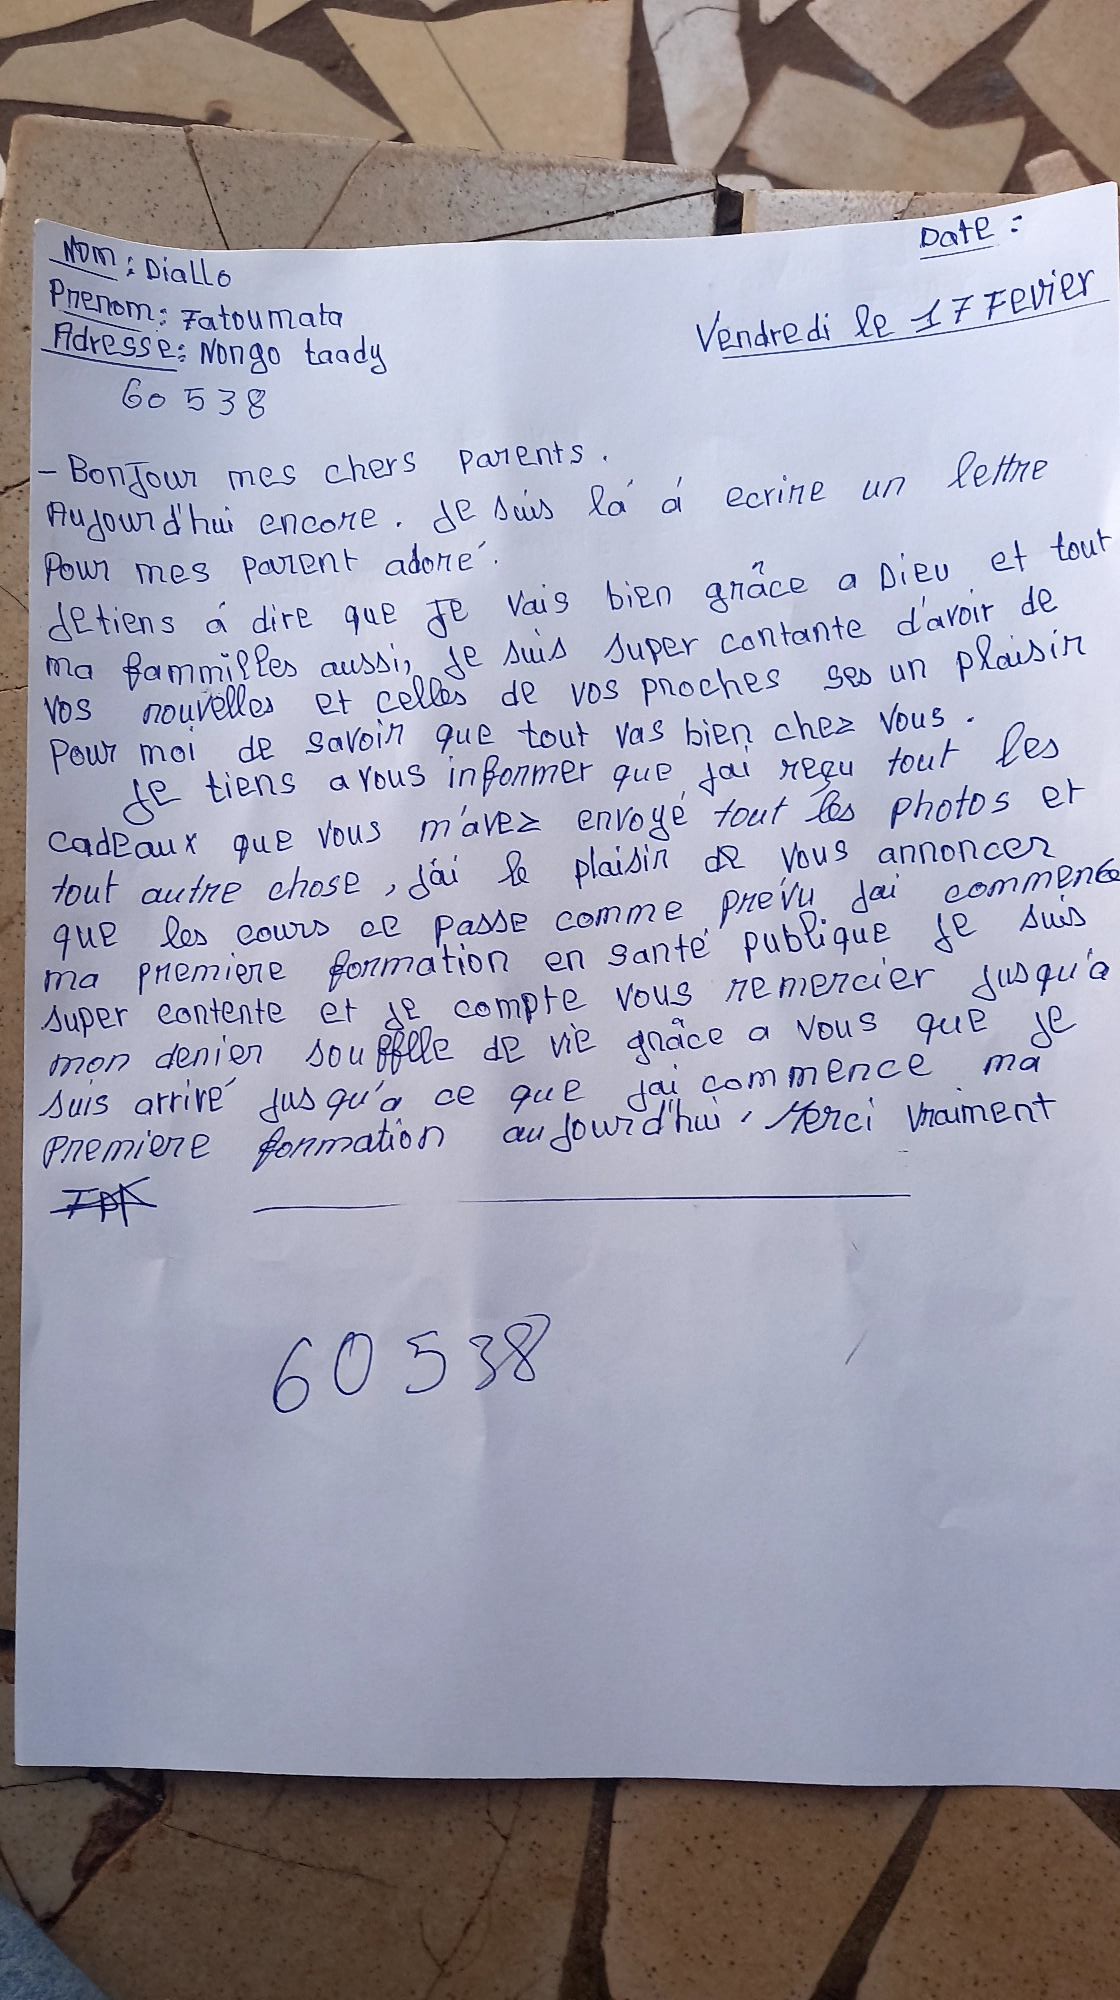 Nom : Diallo
Date :
Prenom : Fatoumata
Vendredi le 17 Fevier
Adresse : Nongo taady
60 538
- Bonjour mes chers parents.
Aujourd'hui encore. Je suis là à ecrire un lettre
Pour mes parent adoré.
Je tiens à dire que Je vais bien grâce a Dieu et tout
ma fammilles aussi, Je suis super contante d'avoir de
vos nouvelles et celles de vos proches ses un plaisir
Pour moi de savoir que tout vas bien chez vous.
Je tiens a vous informer que j'ai reçu tout les
cadeaux que vous m'avez envoyé tout les photos et
tout autre chose, j'ai le plaisir de vous annoncer
que les cours ce passe comme prévu jai commence
ma premiere formation en santé publique Je suis
super contente et je compte vous remercier jusqu'a
mon denier souffle de vie grâce a vous que je
suis arrivé jusqu'a ce que jai commence ma
Premiere formation aujourd'hui. Merci vraiment
60 538